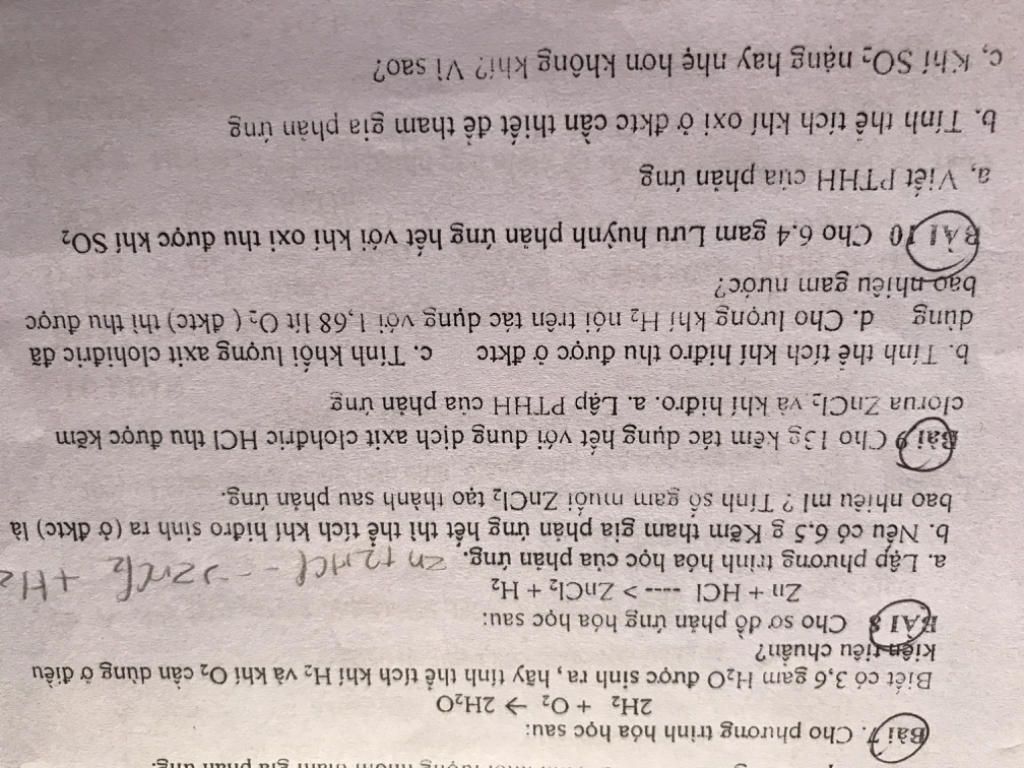 Bài 7. Cho phương trình hóa học sau:
2H₂ + O₂ → 2H₂O
Biết có 3,6 gam H₂O được sinh ra, hãy tính thể tích khí H₂ và khí O₂ cần dùng ở điều
kiện tiêu chuẩn?
BÀI 8 Cho sơ đồ phản ứng hóa học sau:
Zn + HCl ----> ZnCl₂ + H₂
a. Lập phương trình hóa học của phản ứng. Zn + 2HCl --> ZnCl₂ + H₂
b. Nếu có 6,5 g Kẽm tham gia phản ứng hết thì thể tích khí hiđro sinh ra (ở đktc) là
bao nhiêu ml ? Tính số gam muối ZnCl₂ tạo thành sau phản ứng.
Bài 9 Cho 13g kẽm tác dụng hết với dung dịch axit clohđric HCl thu được kẽm
clorua ZnCl₂ và khí hiđro. a. Lập PTHH của phản ứng
b. Tính thể tích khí hiđro thu được ở đktc c. Tính khối lượng axit clohiđric đã
dùng d. Cho lượng khí H₂ nói trên tác dụng với 1,68 lít O₂ ( đktc) thì thu được
bao nhiêu gam nước?
BÀI 10 Cho 6.4 gam Lưu huỳnh phản ứng hết với khí oxi thu được khí SO₂
a, Viết PTHH của phản ứng
b. Tính thể tích khí oxi ở đktc cần thiết để tham gia phản ứng
c, Khí SO₂ nặng hay nhẹ hơn không khí? Vì sao?